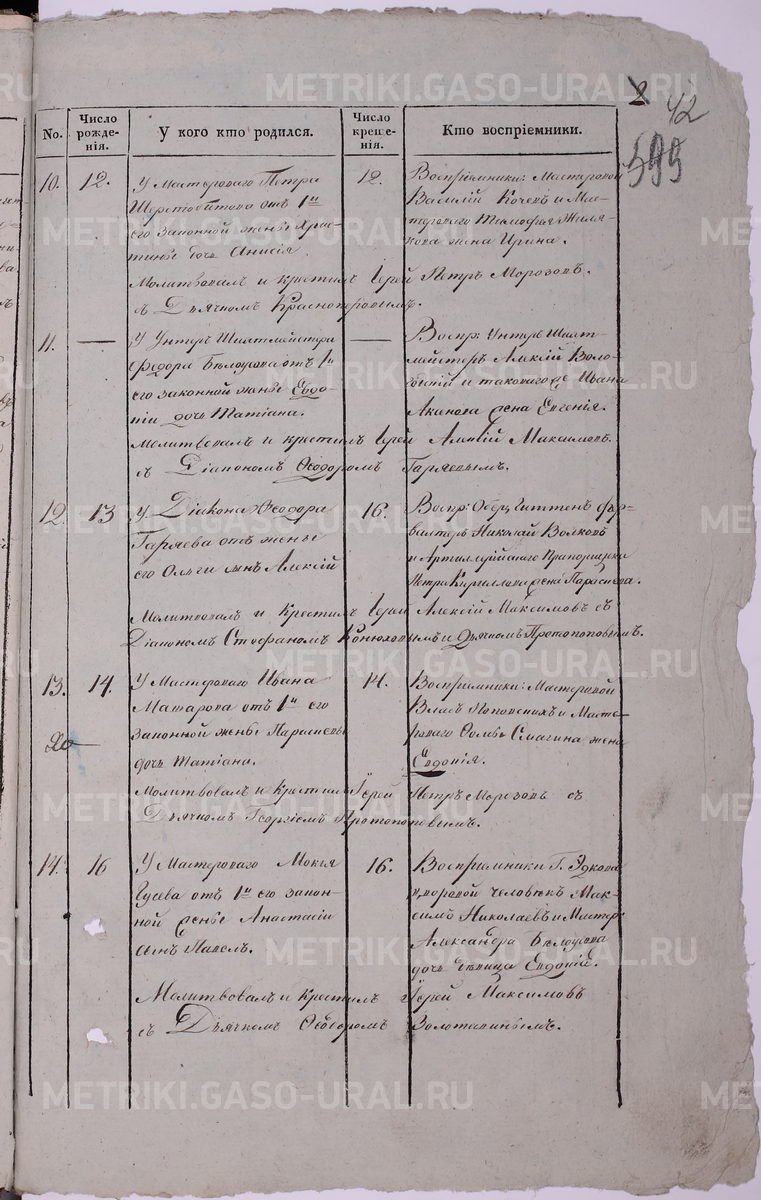 2 42
595
No.
Число рожде- нія.
У кого кто родился.
Число креще- нія.
Кто воспріемники.
10. 12. У Мастероваго Петра
Шерстобитова отъ 1й
его законной жены Хрис-
тины дочь Анисія.
12. Воспріемники: Мастеровой
Василій Кочевъ и Мас-
тероваго Тимофея Жиля-
кова жена Ирина.
Молитвовалъ и крестилъ Іерей Петръ Морозовъ.
съ Дьячкомъ Красноперовымъ.
11. — У Унтеръ Шихтмейстера
Федора Бѣлоусова отъ 1й
его законной жены Евдо-
кіи дочь Татіана.
— Воспр: Унтеръ Шихт-
мейстеръ Алексій Воло-
и таковагоже Ивана
жена Евгенія.
Молитвовалъ и крестилъ Іерей Алексій Максимовъ.
съ Діакономъ Ѳеодоромъ Гаряевымъ.
12. 13 У Діакона Ѳеодора
Гаряева отъ жены
его Ольги сынъ Алексій
16. Воспр: Обер Гиттенъ фер-
валтеръ Николай Волковъ
и Артиллерійскаго Прапорщика
Петра Кириллова жена Параскева.
Молитвовалъ и Крестилъ Іерей Алексій Максимовъ съ
Діакономъ Стефаномъ Конюховымъ и Дьячкомъ Протопоповымъ.
13. 14. У Мастероваго Ивана
Макарова отъ 1й его
законной жены Параскевы
дочь Татіана.
14. Воспріемники: Мастеровой
Власъ Поповскихъ и Масте-
роваго Смагина жена
Евдокія.
20
Молитвовалъ и Крестилъ Іерей Петръ Морозовъ съ
Дьячкомъ Георгіемъ Протопоповымъ.
14. 16 У Мастероваго Мокія
Гусева отъ 1й его закон-
ной жены Анастасіи
сынъ Павелъ.
16. Воспріемники Г.
дворовой человѣкъ Мак-
симъ Николаевъ и Мастер:
Александра Бѣлоусова
дочь дѣвица Евдокія.
Молитвовалъ и Крестилъ Іерей Максимовъ
съ Дьячкомъ Ѳеодоромъ Золотавинымъ.
METRIKI.GASO-URAL.RU